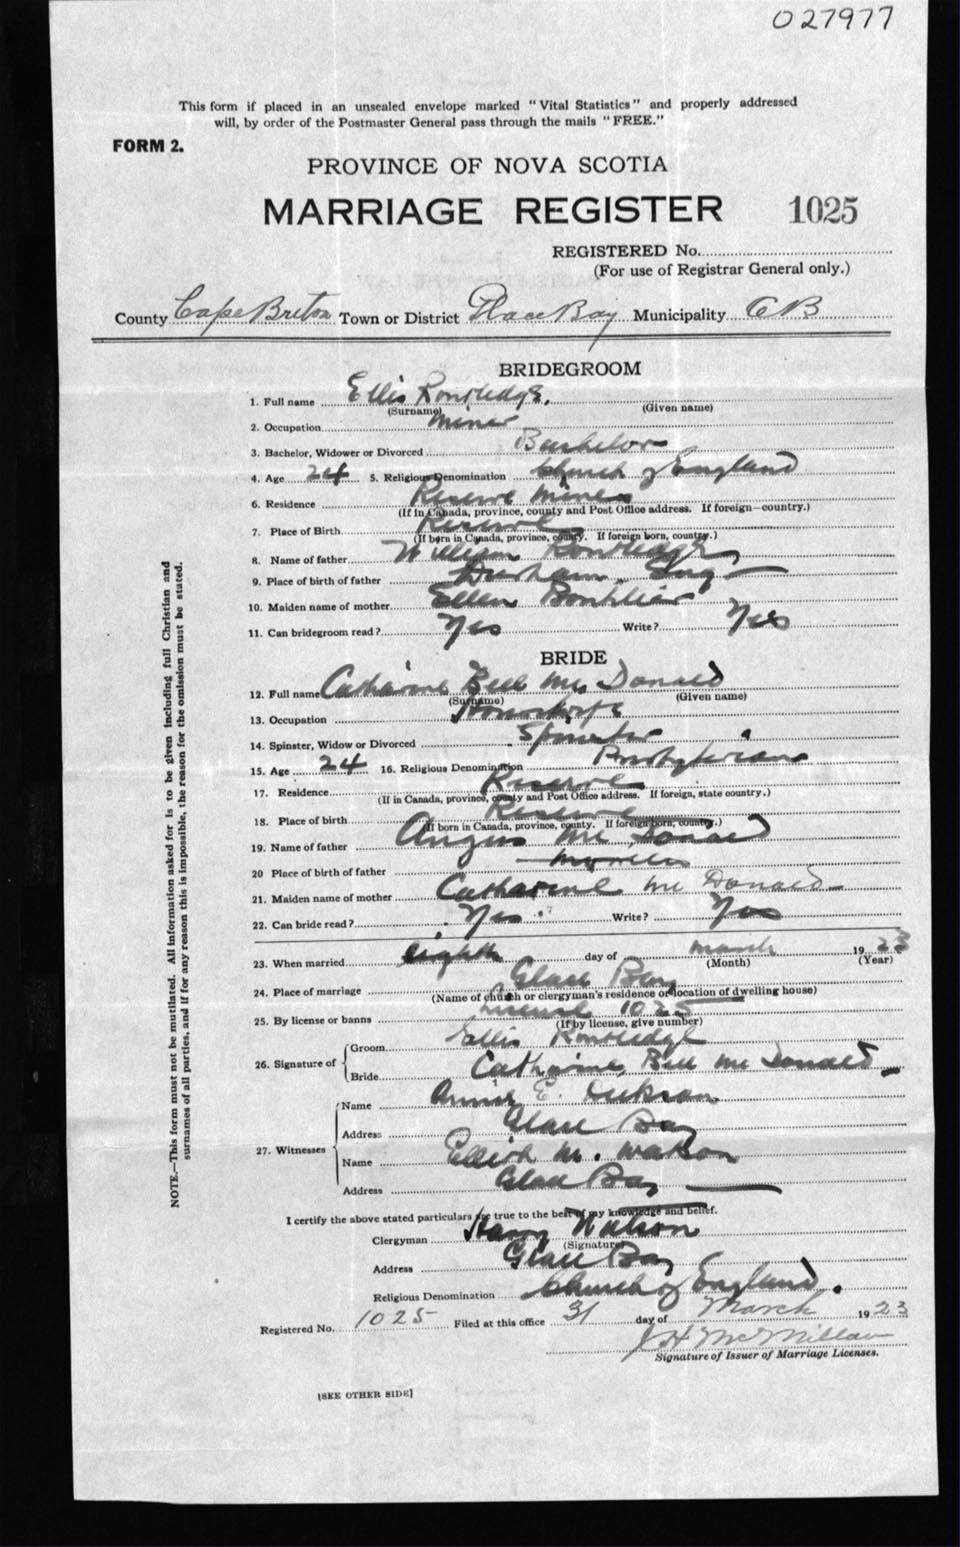 027977
This form if placed in an unsealed envelope marked "Vital Statistics" and properly addressed
will, by order of the Postmaster General pass through the mails "FREE."
FORM 2.
PROVINCE OF NOVA SCOTIA
MARRIAGE REGISTER 1025
REGISTERED No.
(For use of Registrar General only.)
County Cape Breton Town or District Glace Bay Municipality CB
BRIDEGROOM
1. Full name Ellis Routledge.
(Surname) (Given name)
2. Occupation miner
3. Bachelor, Widower or Divorced Bachelor
4. Age 24 5. Religious Denomination Church of England
6. Residence Reserve Mines
(If in Canada, province, county and Post Office address. If foreign—country.)
7. Place of Birth Reserve
(If born in Canada, province, county. If foreign born, country.)
8. Name of father William Routledge
9. Place of birth of father Durham Eng
10. Maiden name of mother Ellen
11. Can bridegroom read? Yes Write? Yes
BRIDE
12. Full name Catharine Bell Mc Donald
(Surname) (Given name)
13. Occupation
14. Spinster, Widow or Divorced Spinster
15. Age 24 16. Religious Denomination Presbyterian
17. Residence Reserve
(If in Canada, province, county and Post Office address. If foreign, state country.)
18. Place of birth Reserve
(If born in Canada, province, county. If foreign born, country.)
19. Name of father Angus Mc Donald
20 Place of birth of father
21. Maiden name of mother Catharine Mc Donald
22. Can bride read? Yes Write? Yes
23. When married eighth day of March 1923
(Month) (Year)
24. Place of marriage Glace Bay
(Name of church or clergyman's residence or location of dwelling house)
25. By license or banns License 1025
(If by license, give number)
26. Signature of Groom Ellis Routledge
Bride Catharine Bell Mc Donald
27. Witnesses Name Annie E. Dickson
Address Glace Bay
Name M. Watson
Address Glace Bay
I certify the above stated particulars are true to the best of my knowledge and belief.
Clergyman Harry Watson
(Signature)
Address Glace Bay
Religious Denomination Church of England.
Registered No. 1025 Filed at this office 31 day of March 1923
J H McMillan
Signature of Issuer of Marriage Licenses.
[SEE OTHER SIDE]
NOTE.—This form must not be mutilated. All information asked for is to be given including full Christian and
surnames of all parties, and if for any reason this is impossible, the reason for the omission must be stated.